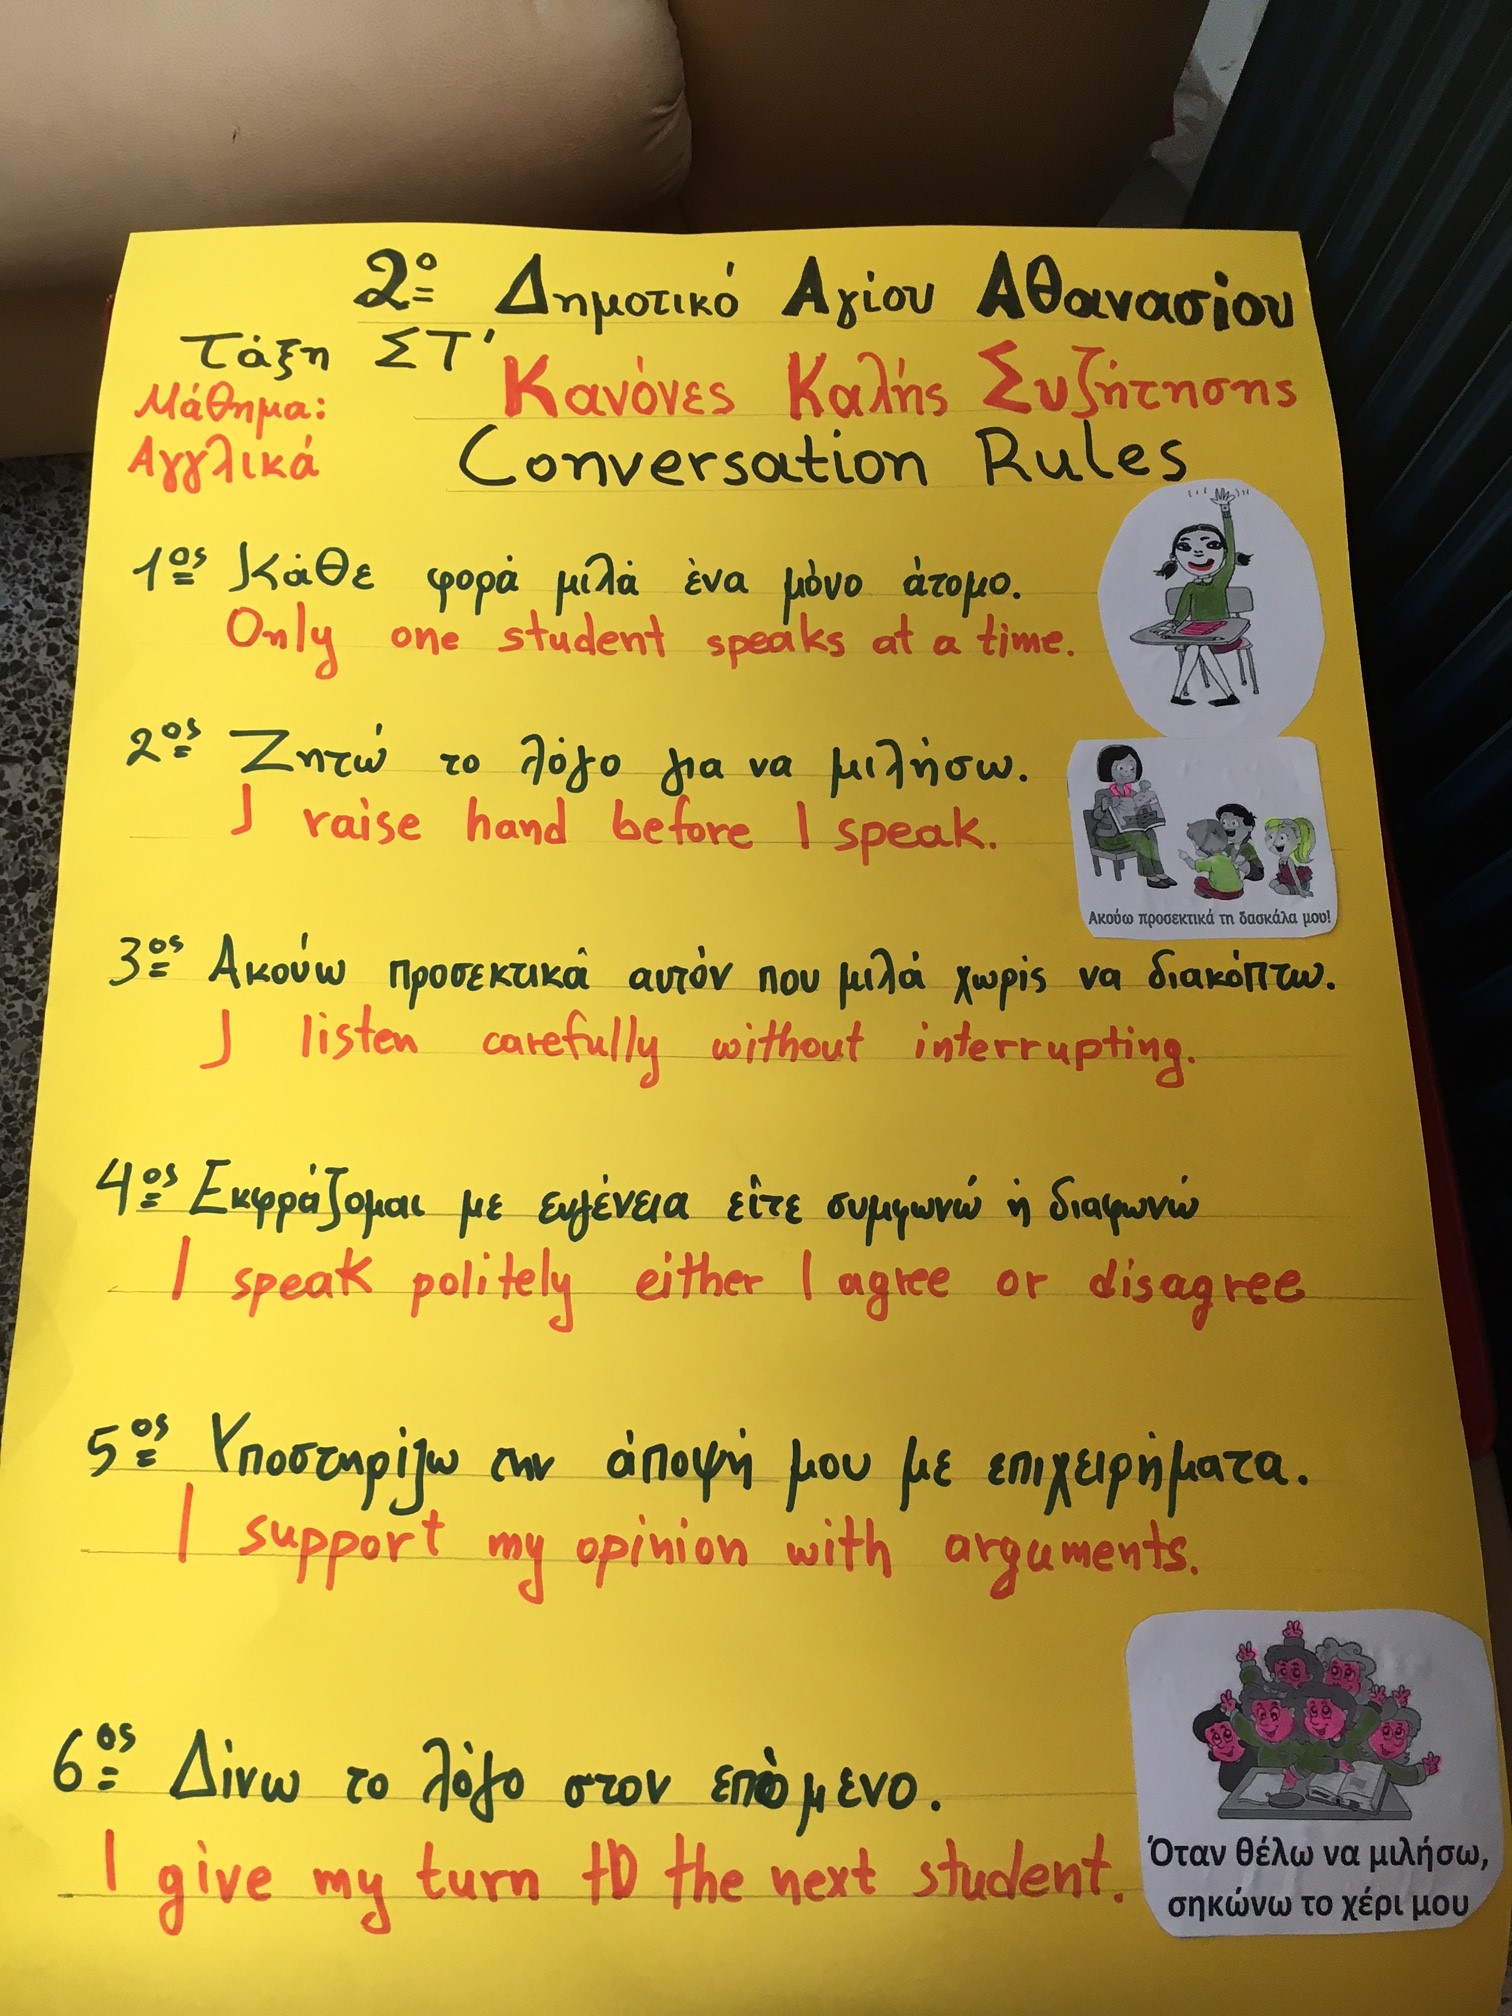 2ο Δημοτικό Αγίου Αθανασίου
Τάξη ΣΤ'
Κανόνες Καλής Συζήτησης
Μάθημα:
Αγγλικά
Conversation Rules
1ος Κάθε φορά μιλά ένα μόνο άτομο.
Only one student speaks at a time.
2ος Ζητώ το λόγο για να μιλήσω.
I raise hand before I speak.
Ακούω προσεκτικά τη δασκάλα μου!
3ος Ακούω προσεκτικά αυτόν που μιλά χωρίς να διακόπτω.
I listen carefully without interrupting.
4ος Εκφράζομαι με ευγένεια είτε συμφωνώ ή διαφωνώ
I speak politely either I agree or disagree
5ος Υποστηρίζω την άποψή μου με επιχειρήματα.
I support my opinion with arguments.
6ος Δίνω το λόγο στον επόμενο.
I give my turn to the next student.
Όταν θέλω να μιλήσω,
σηκώνω το χέρι μου